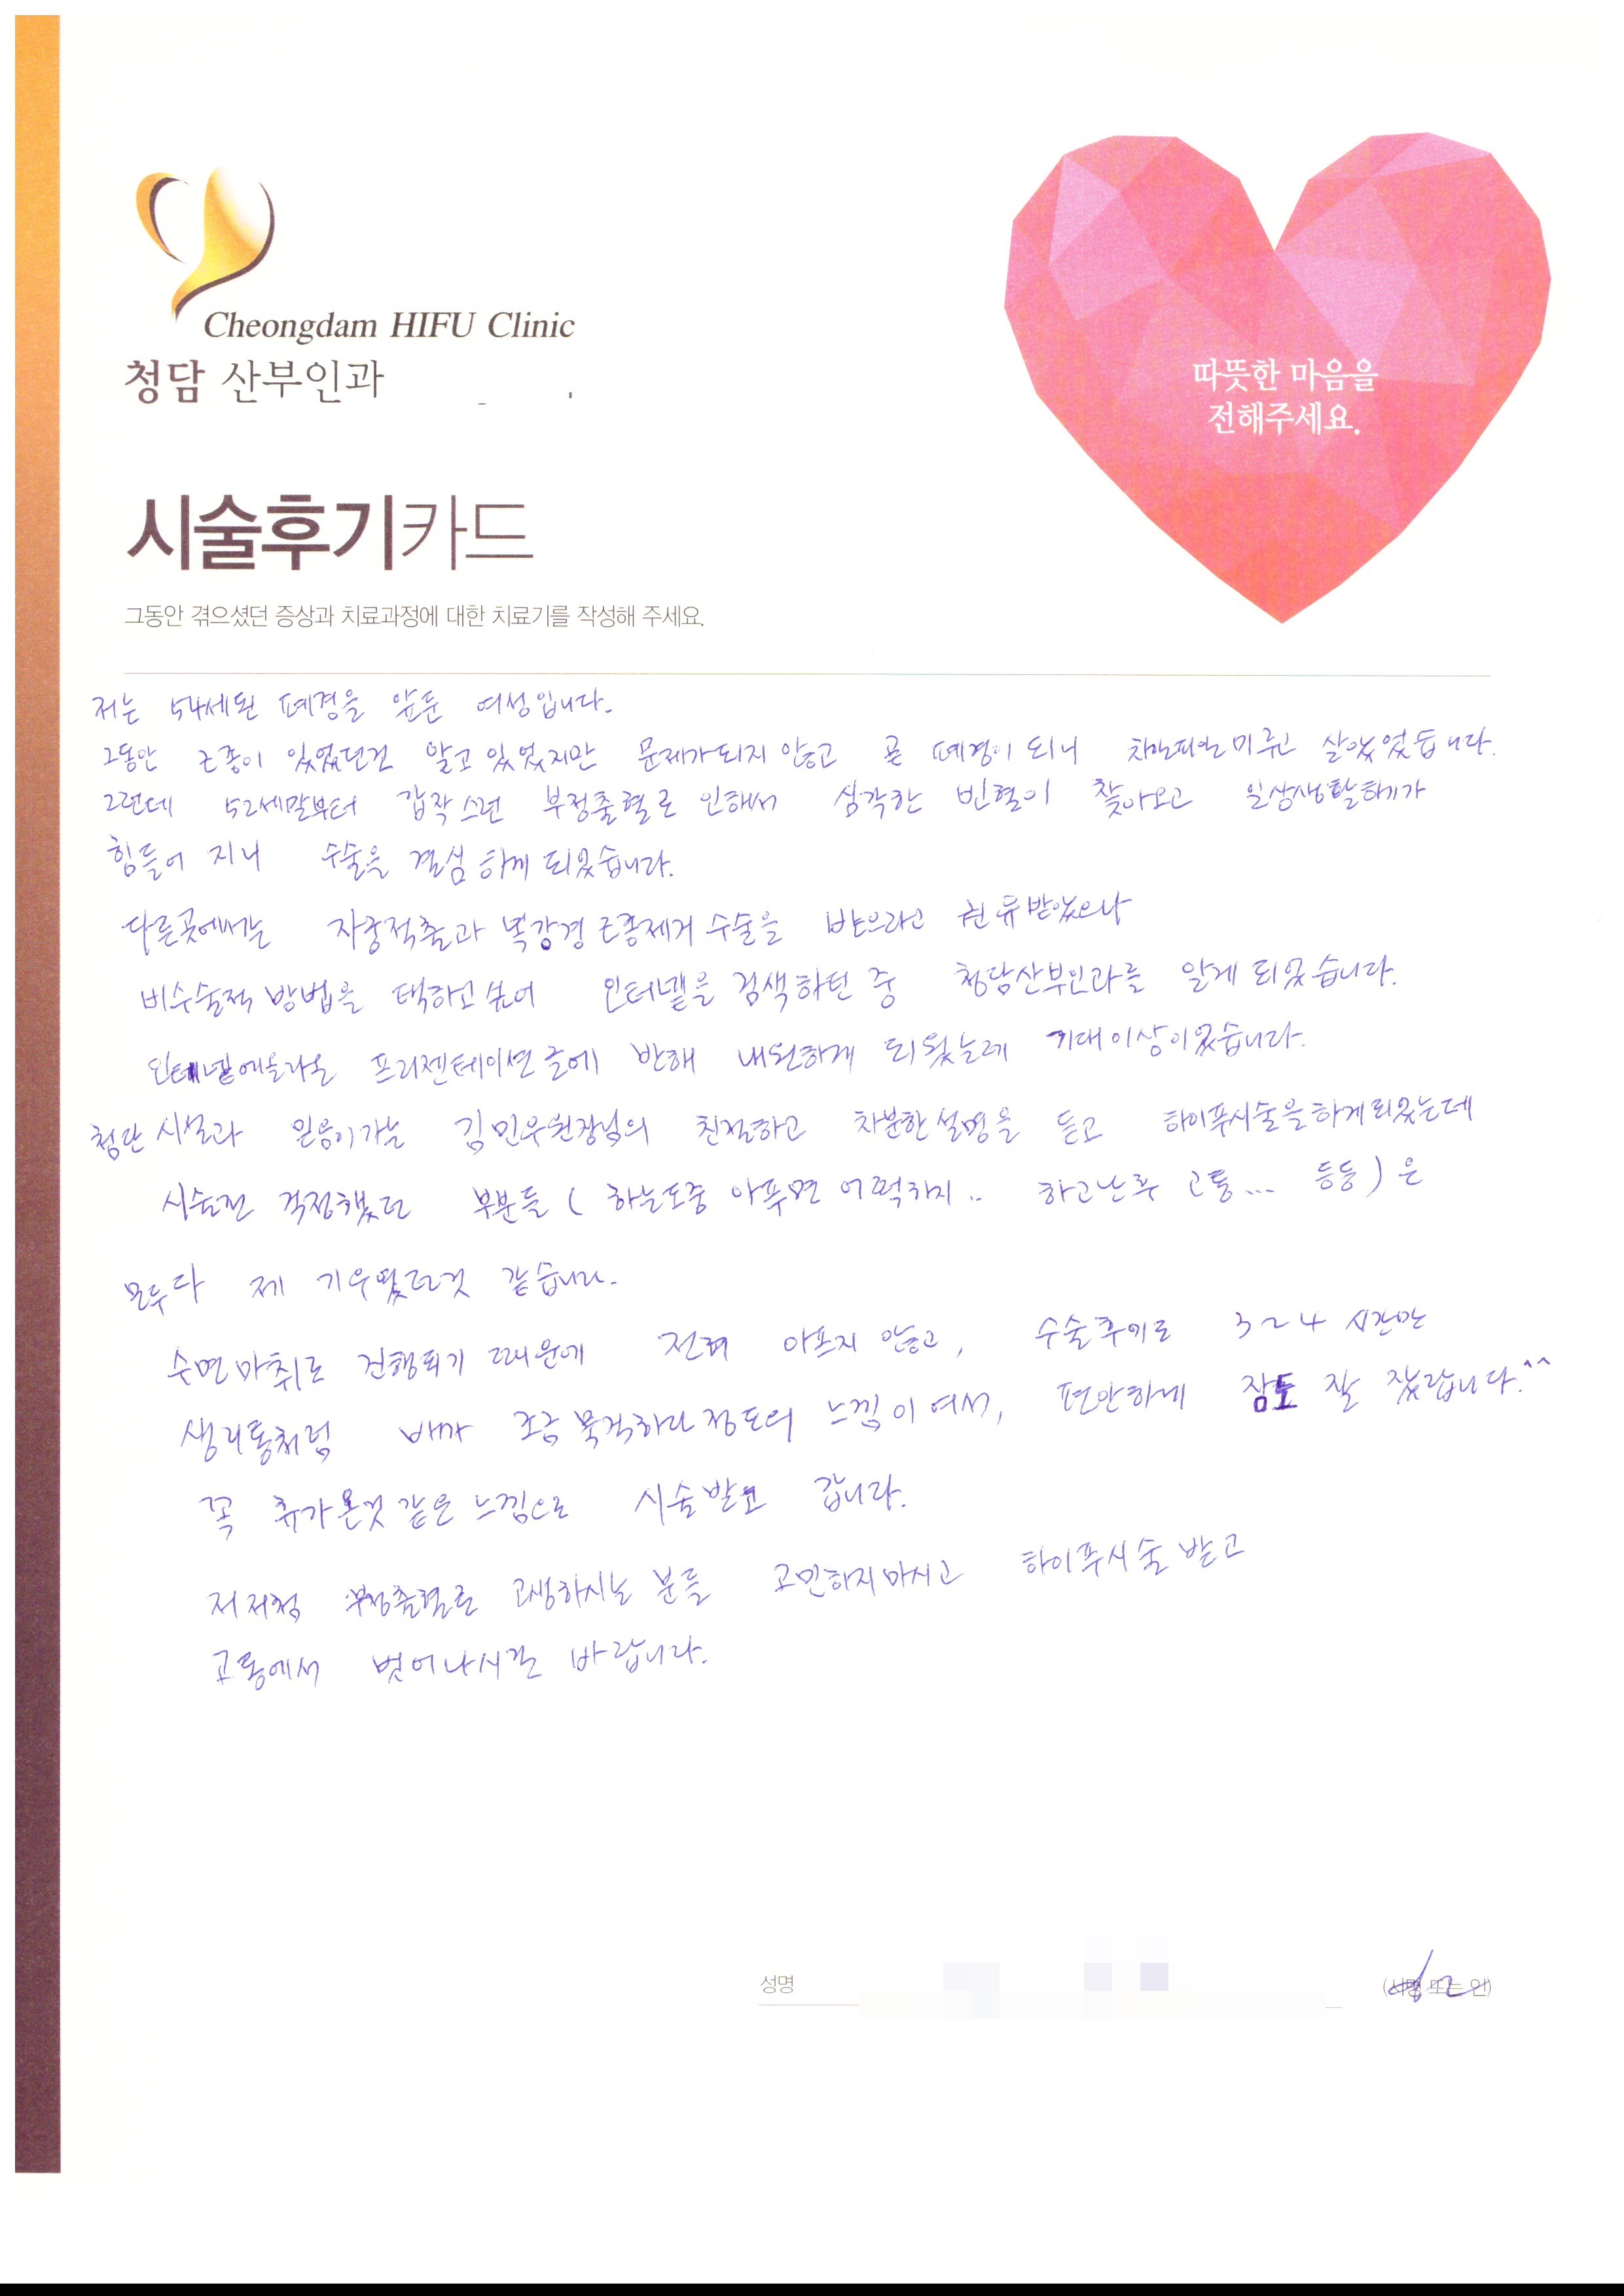 Cheongdam HIFU Clinic
청담 산부인과
따뜻한 마음을
전해주세요.
시술후기카드
그동안 겪으셨던 증상과 치료과정에 대한 치료기를 작성해 주세요.
저는 54세된 폐경을 앞둔 여성입니다.
그동안 근종이 있었던건 알고 있었지만 문제가되지 않고 곧 폐경이 되니 차일피일미루고 살았었습니다.
그런데 52세말부터 갑작스런 부정출혈로 인해서 심각한 빈혈이 찾아오고 일상생활하기가
힘들어 지니 수술을 결심하게 되었습니다.
다른곳에서는 자궁적출과 복강경 근종제거 수술을 받으라고 권유받았으나
비수술적 방법을 택하고싶어 인터넷을 검색하던 중 청담산부인과를 알게 되었습니다.
인터넷에올라온 프리젠테이션글에 반해 내원하게 되었는데 기대이상이었습니다.
첨단 시설과 믿음이가는 김민우원장님의 친절하고 차분한설명을 듣고 하이푸시술을하게되었는데
시술전 걱정했던 부분들 ( 하는도중 아푸면 어떡하지.. 하고난후 고통... 등등 ) 은
모두다 제 기우였던것 같습니다.
수면마취로 진행되기 때문에 전혀 아프지 않고, 수술후에도 3~4 시간만
생리통처럼 배가 조금 묵직하다정도의 느낌이여서, 편안하게 잠도 잘 잤답니다.^^
꼭 휴가온것 같은 느낌으로 시술받고 갑니다.
저처럼 부정출혈로 고생하시는 분들 고민하지마시고 하이푸시술 받고
고통에서 벗어나시길 바랍니다.
성명
(서명 또는 인)